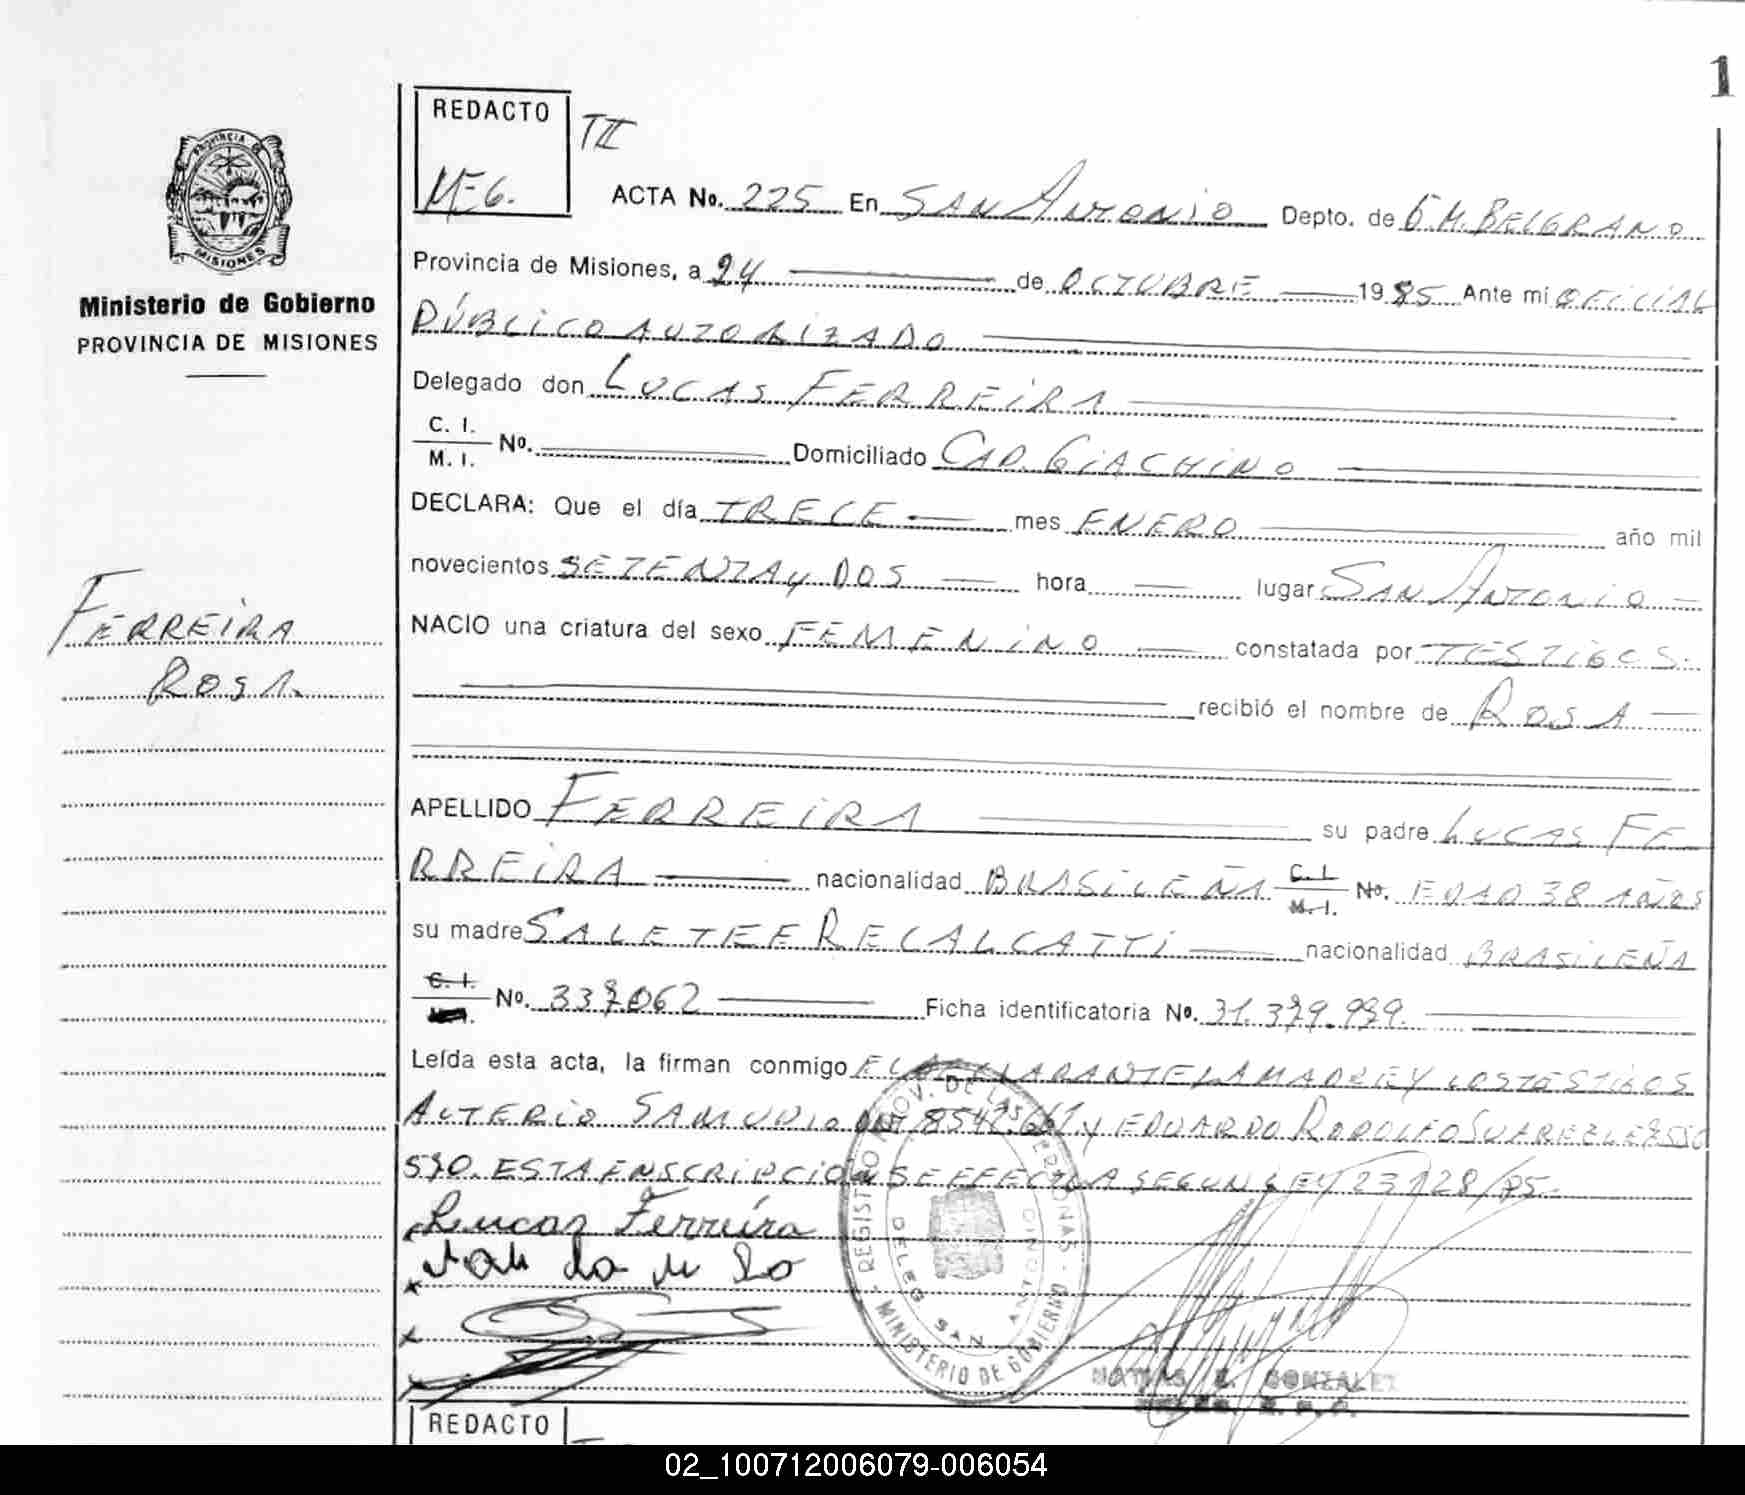 1
REDACTO
TII
M E G.
PROVINCIA DE
MISIONES
Ministerio de Gobierno
PROVINCIA DE MISIONES
FERREIRA
ROSA.
ACTA No. 225 En SAN ANTONIO Depto. de G.M. BELGRANO
Provincia de Misiones, a 24 de OCTUBRE 1985 Ante mi OFICIAL
PÚBLICO AUTORIZADO
Delegado don LUCAS FERREIRA
C. I.
M. I. No. Domiciliado CAP. GIACHINO
DECLARA: Que el día TRECE mes ENERO año mil
novecientos SETENTA y DOS hora lugar SAN ANTONIO
NACIO una criatura del sexo FEMENINO constatada por TESTIGOS.
recibió el nombre de ROSA
APELLIDO FERREIRA su padre LUCAS FE
RREIRA nacionalidad BRASILEÑA C. I. M. I. No. EDAD 38 AÑOS
su madre SALETEE RECALCATTI nacionalidad BRASILEÑA
C. I.
No. 337062 Ficha identificatoria No. 31.379.999.
Leída esta acta, la firman conmigo EL DECLARANTE LA MADRE Y LOS TESTIGOS
ALTERIO SAMUDIO DNI y EDUARDO RODOLFO SUAREZ LE
590. ESTA ENSCRIPCION SE EFFECTUA SEGUN LEY 23128/85.
Lucas Ferreira
REGISTRO PROV. DE LAS PERSONAS
DELEG. SAN ANTONIO
MINISTERIO DE GOBIERNO
MATIAS E. GONZALEZ
REDACTO
02_100712006079-006054